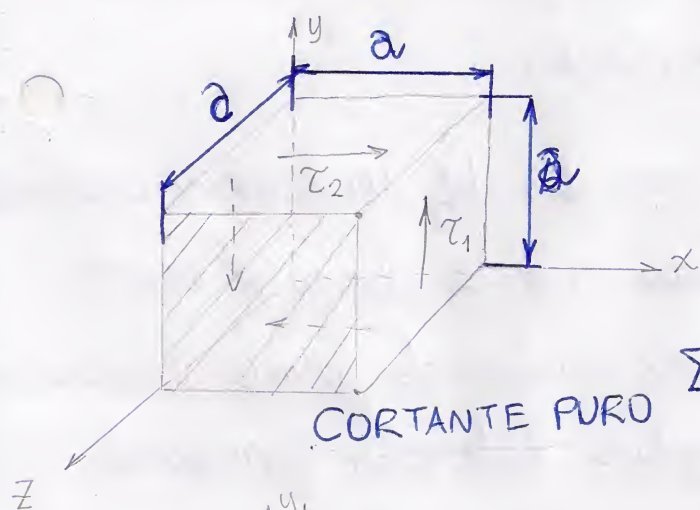 y
a
a
a
τ₂
τ₁
x
Σ
CORTANTE PURO
z
y